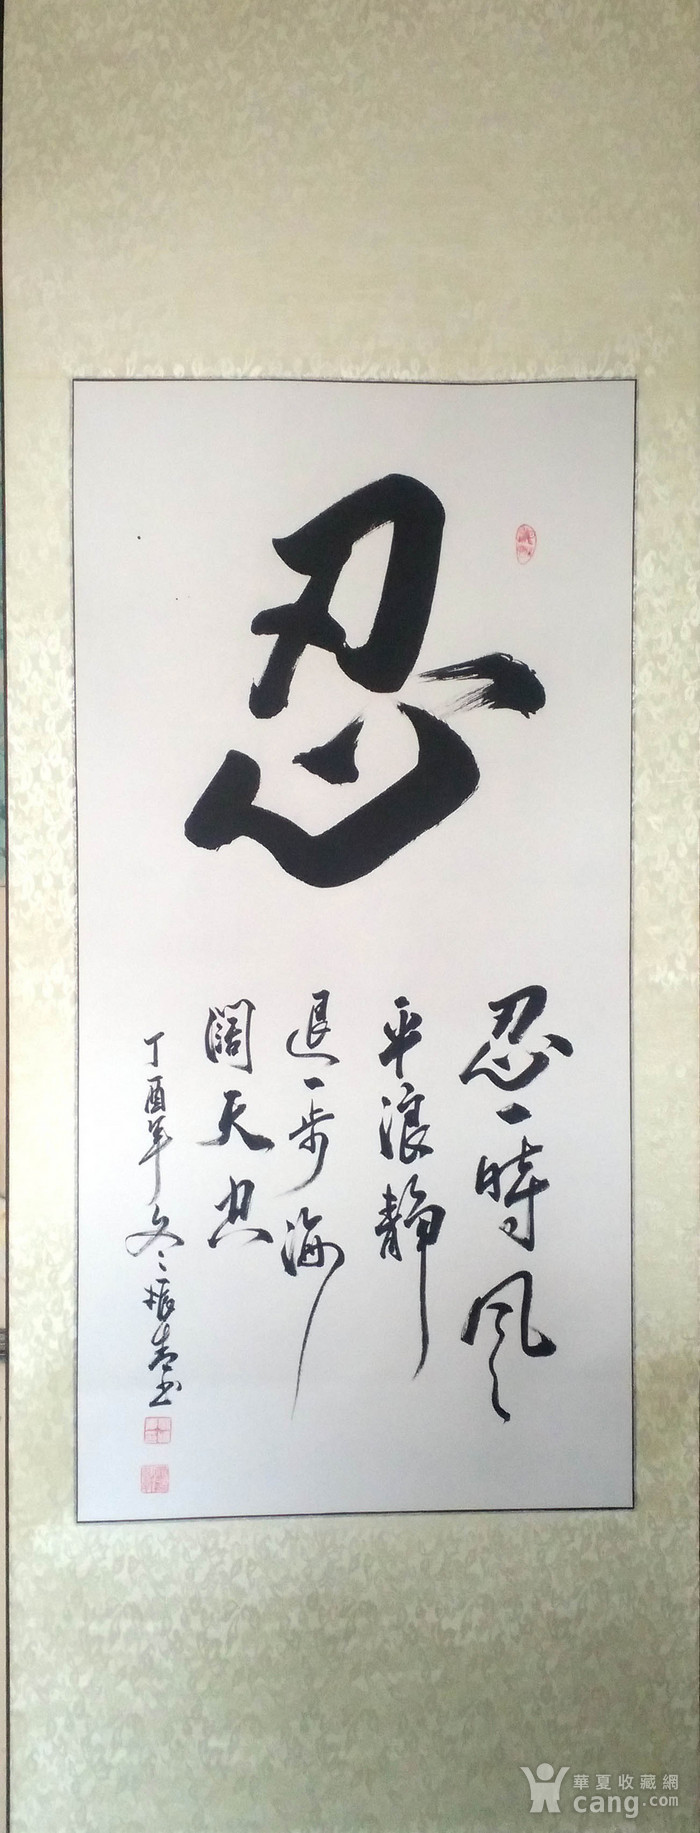 忍
忍一時風
平浪靜
退一步海
闊天空
丁酉年冬振春書
華夏收藏網
cang.com